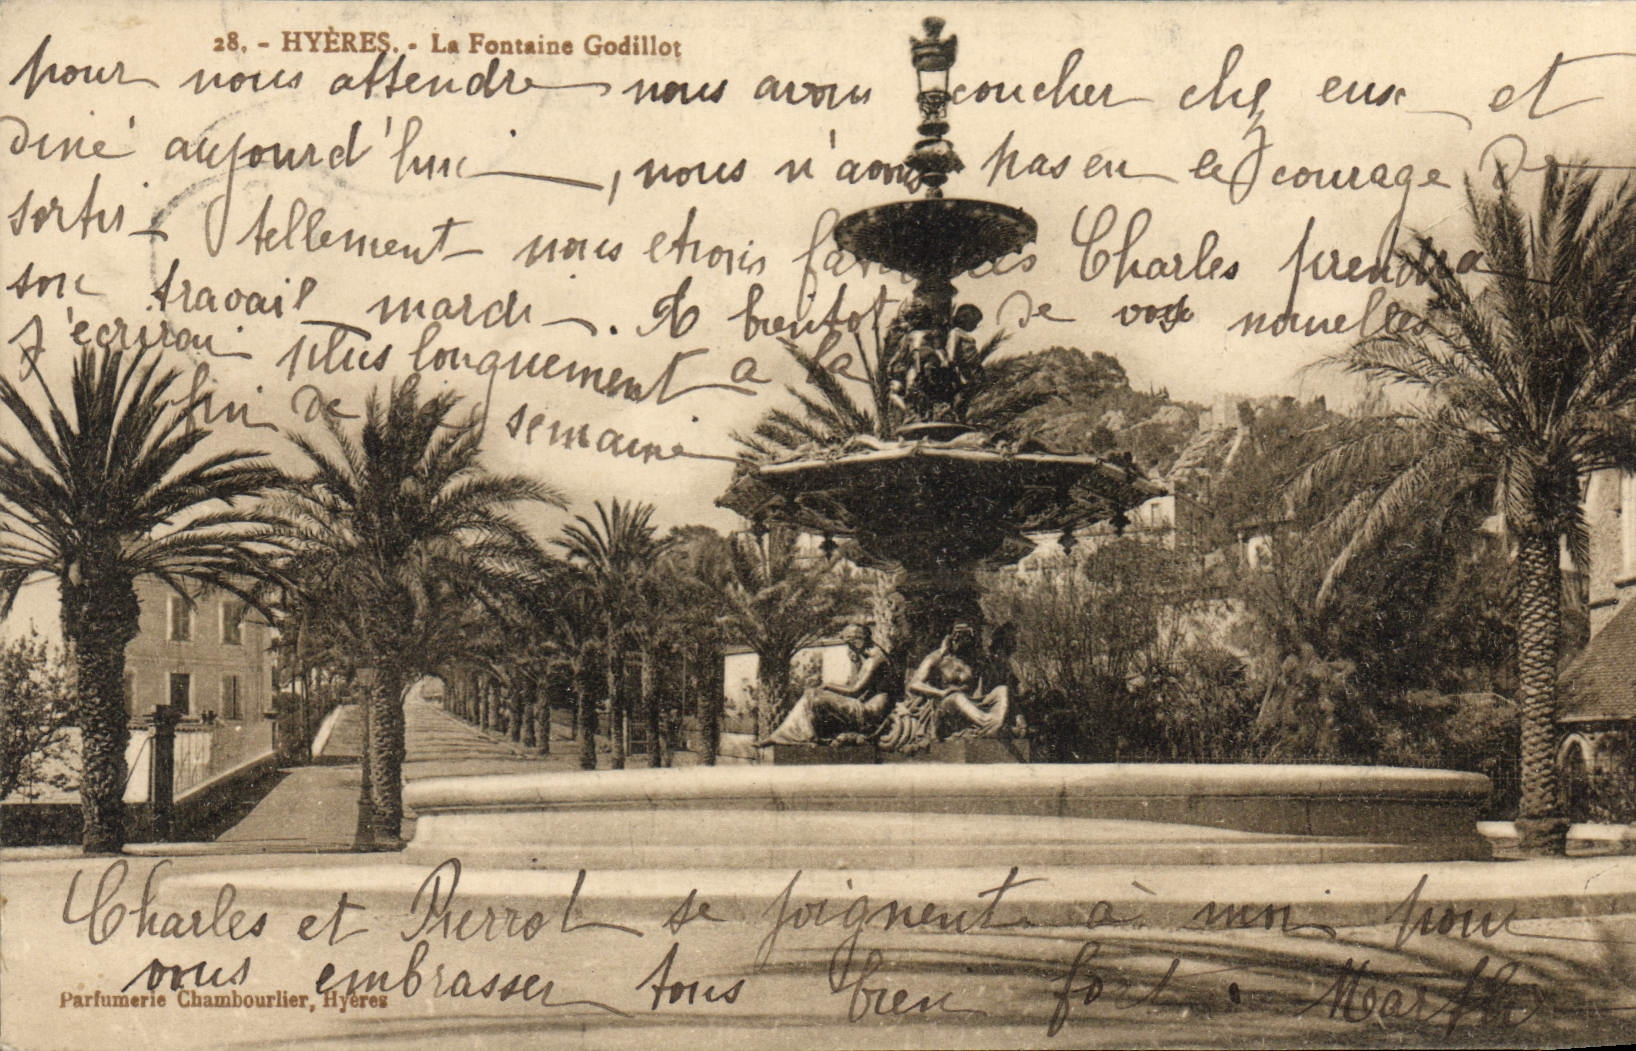 28. - HYÈRES. - La Fontaine Godillot
pour nous attendre nous avons coucher chez eux et
diné aujourd'hui, nous n'avons pas eu le courage de
sortir tellement nous etions fatigués Charles prendra
son travail mardi. A bientot de vos nouvelles
J'ecrirai plus longuement a la
fin de la semaine
Charles et Pierrot se joignent à moi pour
vous embrasser tous bien fort. Marthe
Parfumerie Chambourlier, Hyères